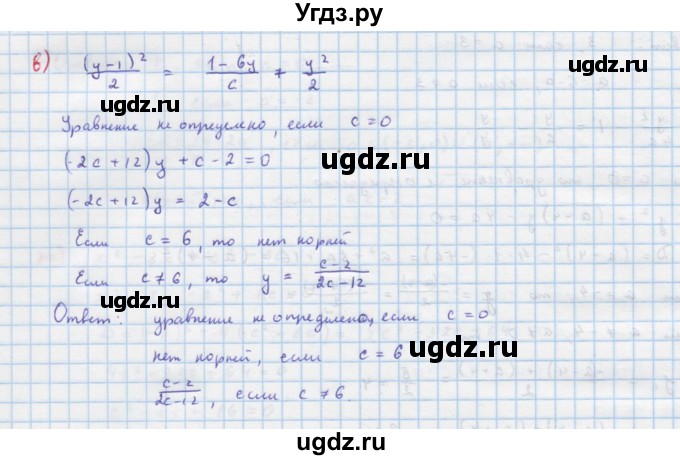 Угдз.ру
б) (y-1)²/2 = (1-6y)/c + y²/2
ugdz.ru ugdz.ru ugdz.ru
Уравнение не определено, если c=0
ugdz.ru
(-2c+12)y + c-2=0
(-2c+12)y = 2-c
Если c=6, то нет корней
ugdz.ru ugdz.ru
Если c≠6, то y = (c-2)/(2c-12)
Ответ: уравнение не определено, если c=0
нет корней, если c=6
ugdz.ru
(c-2)/(2c-12), если c≠6.
ugdz.ru
ugdz.ru